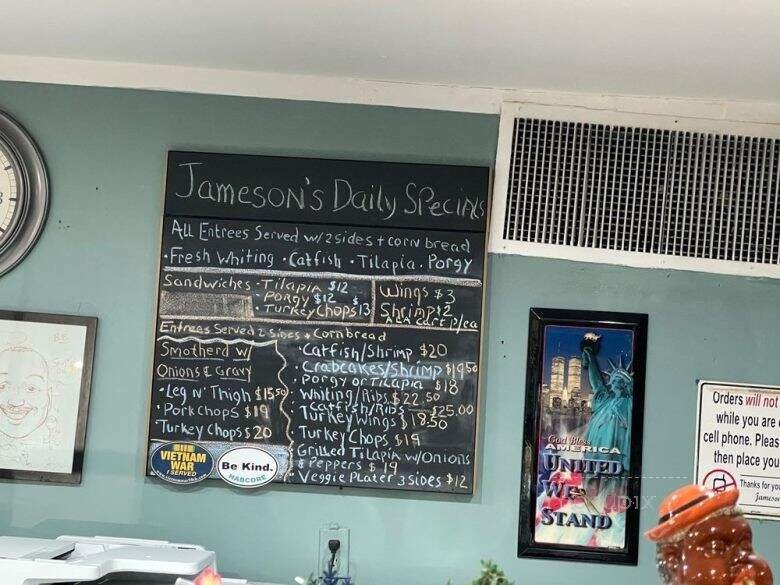 Jameson's Daily Specials
All Entrees Served w/ 2 sides + corn bread
• Fresh Whiting • Catfish • Tilapia • Porgy
Sandwiches • Tilapia $12
• Porgy $12
• Turkey Chops $13
Wings $3
Shrimp $2
Ala Cart p/ea
Entrees Served 2 sides + Cornbread
Smotherd w/
Onions & Gravy
• Leg N' Thigh $15.50
• Pork Chops $19
• Turkey Chops $20
• Catfish/Shrimp $20
• Crabcakes/Shrimp $19.50
• Porgy or Tilapia $18
• Whiting/Ribs $22.50
• Catfish/Ribs $25.00
• Turkey Wings $18.50
• Turkey Chops $19
• Grilled Tilapia w/Onions
& Peppers $19
• Veggie Plater 3 sides $12
VIETNAM
WAR
I SERVED
Be Kind.
NABCORE
God Bless
AMERICA
UNITED
WE
STAND
Orders will not
while you are
cell phone. Pleas
then place you
Thanks for yo
Jameson